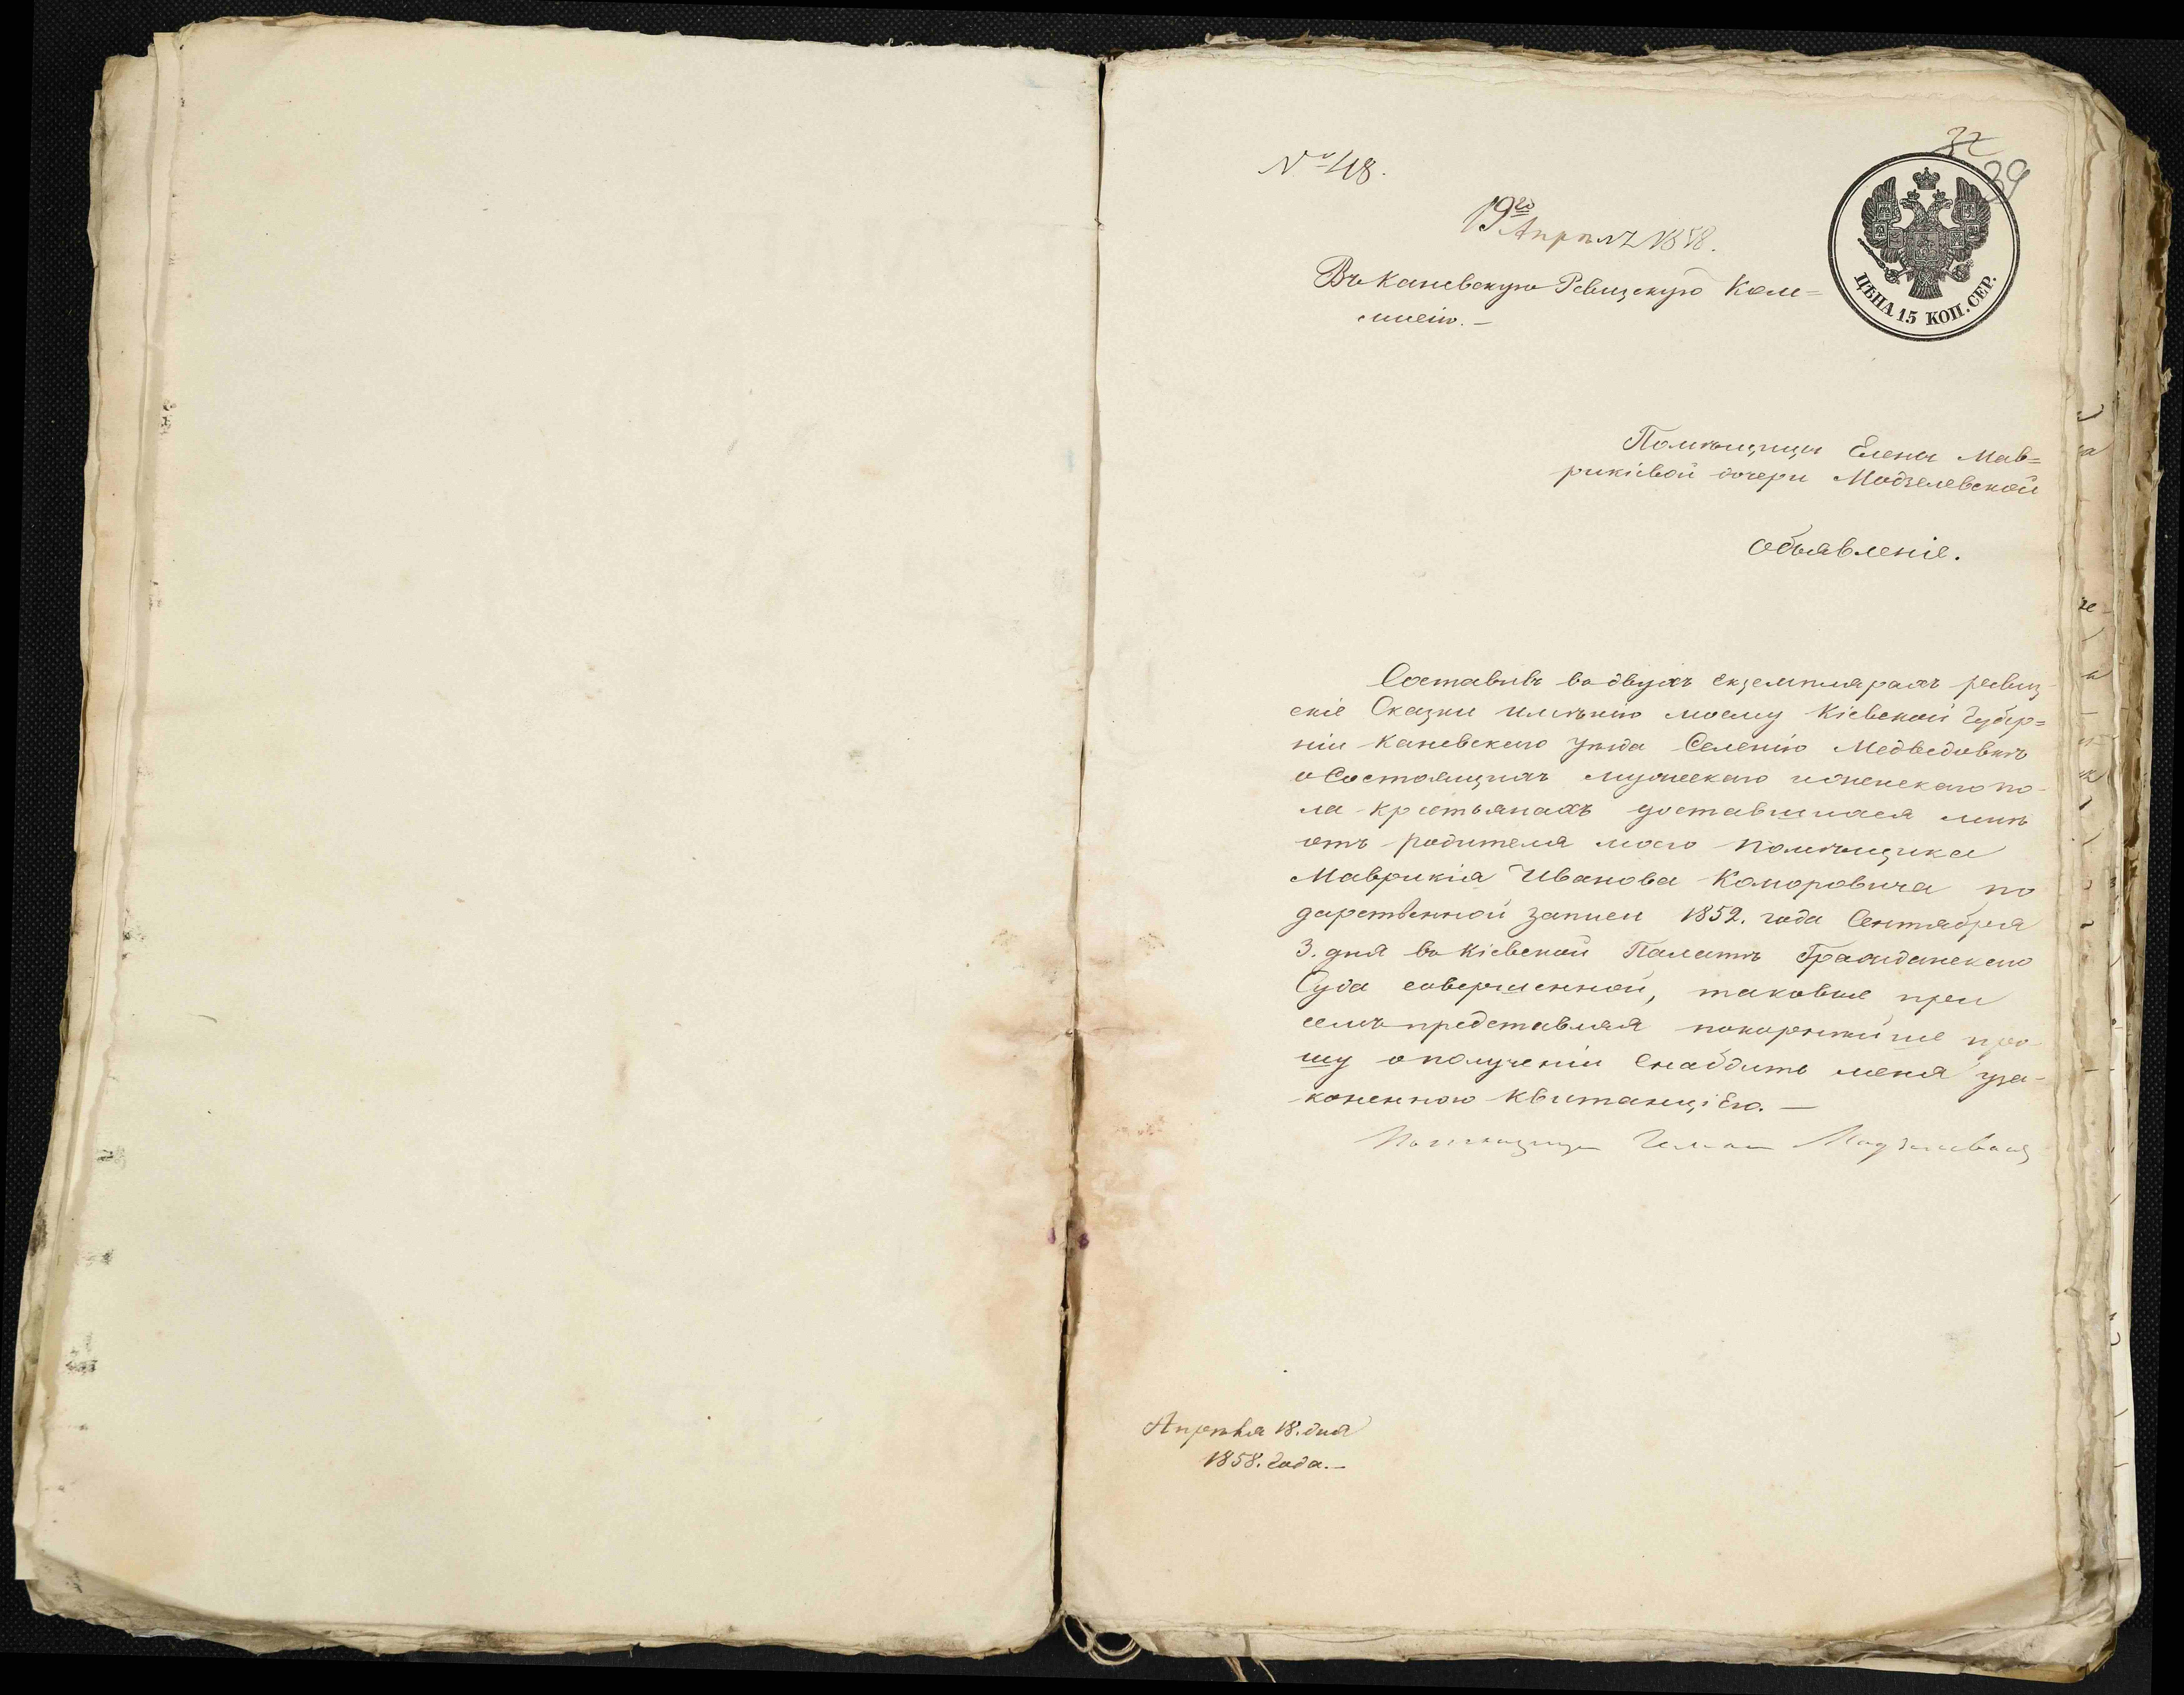 32
39
№ 418.
19го Апрѣля 1858.
ЦѢНА 15 КОП. СЕР.
Въ Каневскую Ревизскую Ком=
мисію.—
Помѣщицы Елены Мав=
рикіевой дочери Модзелевской
Объявленіе.
Составивъ въ двухъ екземплярахъ ревиз
скіе Сказки имѣнію моему Кіевской Губер=
ніи Каневскаго уѣзда Селенію Медведовкѣ
о Состоящихъ мужескаго и женскаго по-
ла крестьянахъ доставшихся мнѣ
отъ родителя моего помѣщика
Маврикія Иванова Коморовича по
дарственной записи 1852. года Сентября
3. дня въ Кіевской Палатѣ Гражданскаго
Суда совершенной, таковые при
семъ представляя покорнѣйше про-
шу о полученіи Снабдить меня уза-
коненною Квитанціею.—
Помѣщица Елена Модзелевская
Апрѣля 18. дня
1858. Года.—